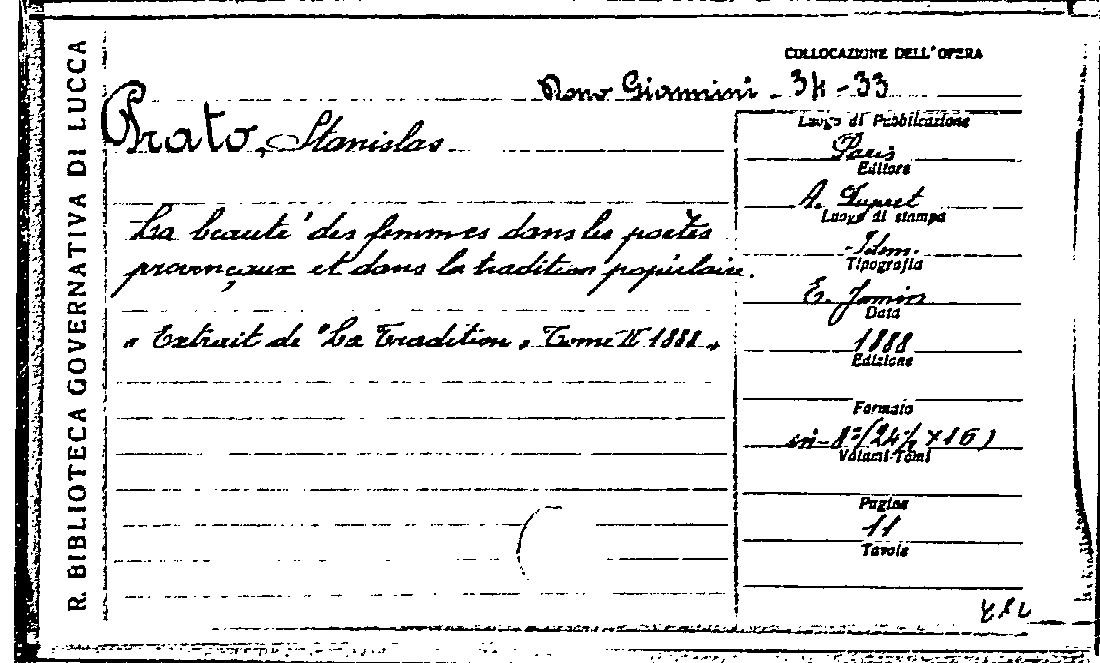 R. BIBLIOTECA GOVERNATIVA DI LUCCA
COLLOCAZIONE DELL'OPERA
Dono Giannini - 34-33
Prato, Stanislas.
La beauté des femmes dans les poètes
provençaux et dans la tradition populaire.
« Extrait de "La Tradition" Tome II 1888 »
Luogo di Pubblicazione
Paris
Editore
A. Dupret
Luogo di stampa
Idem.
Tipografia
E. Jamin
Data
1888
Edizione
Formato
in-8º (24½ × 16)
Volumi-Tomi
Pagine
11
Tavole